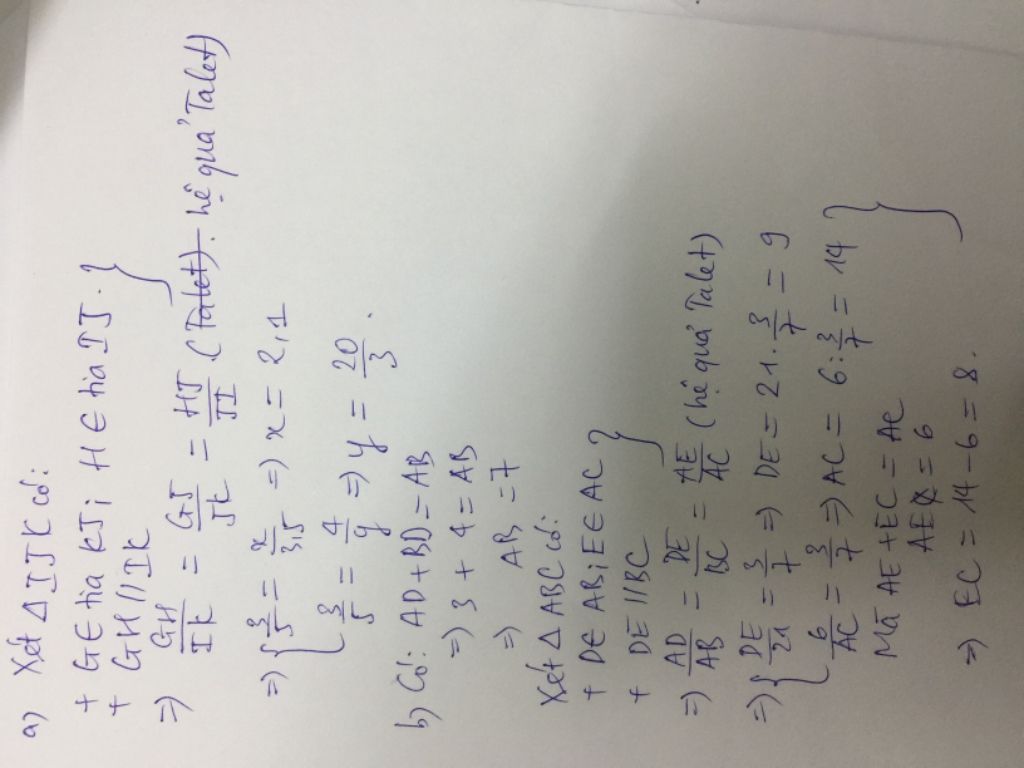 a) Xét ΔIJK có:
+ G∈ tia KJ; H∈ tia IJ.}
+ GH // IK
=> GH/IK = GJ/JK = HJ/JI (Talet). hệ quả Talet)
=> { 3/5 = x/3,5 => x = 2,1
3/5 = 4/y => y = 20/3.
b) Có: AD+BD = AB
=> 3 + 4 = AB
=> AB = 7
Xét Δ ABC có:
+ D∈ AB; E∈ AC }
+ DE // BC
=> AD/AB = DE/BC = AE/AC (hệ quả Talet)
=> { DE/21 = 3/7 => DE = 21. 3/7 = 9
6/AC = 3/7 => AC = 6 : 3/7 = 14 }
Mà AE + EC = AC
AE = 6
=> EC = 14 - 6 = 8.